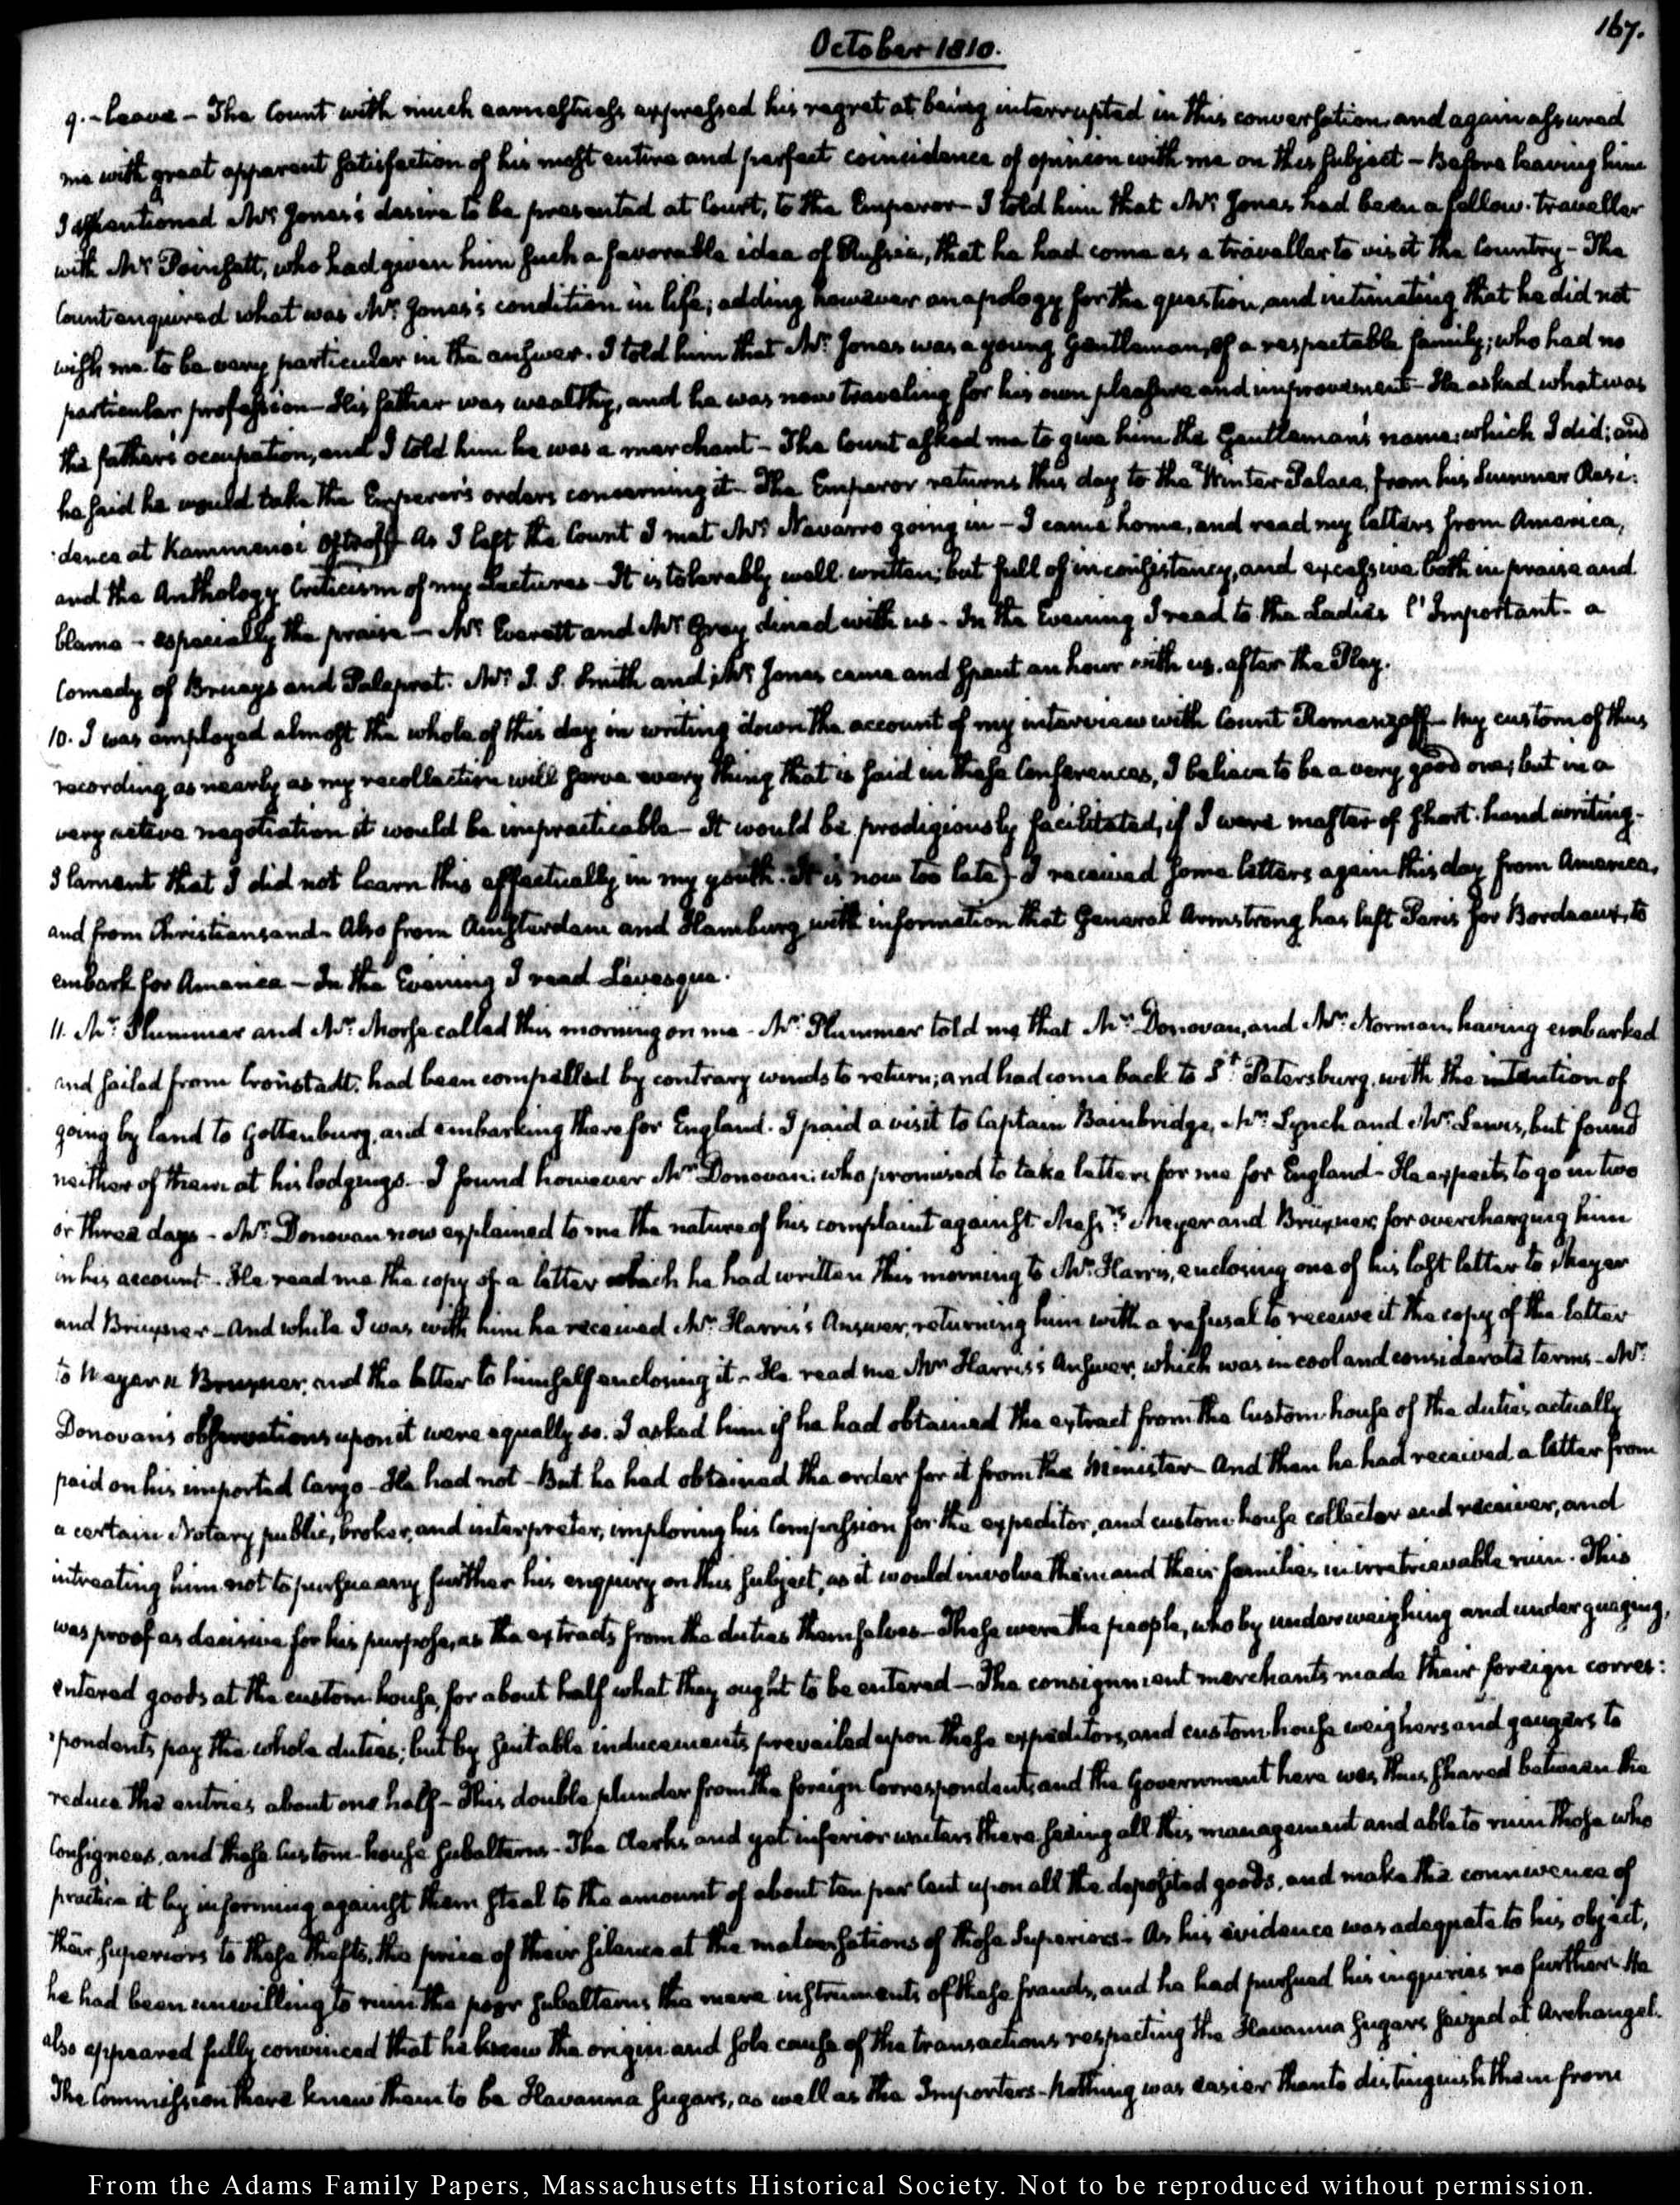 167.
October 1810.
9. - leave - The Count with much earnestness expressed his regret at being interrupted in this conversation and again assured
me with great apparent satisfaction of his most entire and perfect coincidence of opinion with me on this subject - Before leaving him
I mentioned Mr. Jones's desire to be presented at Court, to the Emperor - I told him that Mr. Jones had been a fellow-traveller
with Mr. Poinsett, who had given him such a favorable idea of Russia, that he had come as a traveller to visit the Country - The
Count enquired what was Mr. Jones's condition in life; adding however an apology for the question, and intimating that he did not
wish me to be very particular in the answer. I told him that Mr. Jones was a young Gentleman, of a respectable family; who had no
particular profession - His father was wealthy, and he was now traveling for his own pleasure and improvement - He asked what was
the father's occupation, and I told him he was a merchant - The Count asked me to give him the Gentleman's name; which I did; and
he said he would take the Emperor's orders concerning it - The Emperor returns this day to the Winter Palace, from his Summer Resi:
:dence at Kammenoi Ostroff - As I left the Count I met Mr. Navarro going in - I came home, and read my letters from America,
and the Anthology Criticism of my Lectures - It is tolerably well written; but full of inconsistency, and excessive both in praise and
blame - especially the praise - Mr. Everett and Mr. Gray dined with us - In the Evening I read to the Ladies l'Important - a
Comedy of Brueys and Palaprat. Mr. J. S. Smith and Mr. Jones came and spent an hour with us, after the Play.
10. I was employed almost the whole of this day in writing down the account of my interview with Count Romanzoff - My custom of thus
recording as nearly as my recollection will serve every thing that is said in these Conferences, I believe to be a very good one; but in a
very active negotiation it would be impracticable - It would be prodigiously facilitated, if I were master of short-hand writing -
I lament that I did not learn this effectually in my youth. It is now too late) - I received some letters again this day from America,
and from Christiansand - Also from Amsterdam and Hamburg with information that General Armstrong has left Paris for Bordeaux, to
embark for America - In the Evening I read Levesque.
11. Mr. Plummer and Mr. Morse called this morning on me - Mr. Plummer told me that Mr. Donovan, and Mr. Norman, having embarked
and sailed from Cronstadt, had been compelled by contrary winds to return; and had come back to St. Petersburg, with the intention of
going by land to Gottenburg, and embarking there for England. I paid a visit to Captain Bainbridge, Mr. Lynch and Mr. Lewis, but found
neither of them at his lodgings - I found however Mr. Donovan; who promised to take letters for me for England - He expects to go in two
or three days - Mr. Donovan now explained to me the nature of his complaint against Messrs. Meyer and Bruxner, for overcharging him
in his account - He read me the copy of a letter which he had written this morning to Mr. Harris, enclosing one of his last letter to Meyer
and Bruxner - And while I was with him he received Mr. Harris's Answer, returning him with a refusal to receive it the copy of the letter
to Meyer & Bruxner, and the letter to himself enclosing it - He read me Mr. Harris's Answer, which was in cool and considerate terms - Mr.
Donovan's observations upon it were equally so. I asked him if he had obtained the extract from the Custom-house of the duties actually
paid on his imported Cargo - He had not - But he had obtained the order for it from the Minister - And then he had received a letter from
a certain Notary public, broker, and interpreter, imploring his Compassion for the expeditor, and custom-house collector and receiver, and
intreating him not to pursue any further his enquiry on this subject, as it would involve them and their families in irretrievable ruin. This
was proof as decisive for his purpose, as the extracts from the duties themselves - These were the people, who by underweighing and under guaging,
entered goods at the custom-house, for about half what they ought to be entered - The consignment merchants made their foreign corres:
:pondents pay the whole duties; but by suitable inducements prevailed upon these expeditors, and custom-house weighers and gaugers to
reduce the entries about one half - This double plunder from the foreign Correspondents and the Government here was thus shared between the
Consignees, and these Custom-house subalterns - The Clerks and yet inferior writers there seeing all this management and able to ruin those who
practice it by informing against them steal to the amount of about ten per Cent upon all the deposited goods, and make the connivence of
their superiors to these thefts, the price of their silence at the malversations of those Superiors - As his evidence was adequate to his object,
he had been unwilling to ruin the poor subalterns the mere instruments of these frauds, and he had pursued his inquiries no further - He
also appeared fully convinced that he knew the origin and sole cause of the transactions respecting the Havanna sugars seized at Archangel.
The Commission there knew them to be Havanna sugars, as well as the Importers - Nothing was easier than to distinguish them from
From the Adams Family Papers, Massachusetts Historical Society. Not to be reproduced without permission.